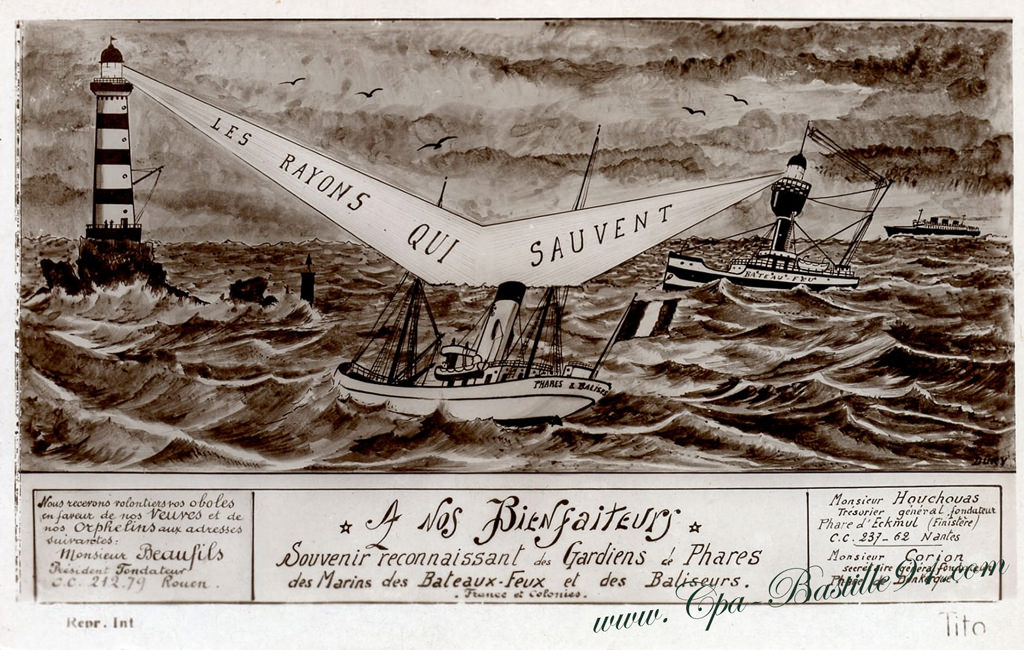 LES RAYONS QUI SAUVENT
BATEAU-FEU
PHARES & BALISES
Nous recevons volontiers vos oboles
en faveur de nos Veuves et de
nos Orphelins aux adresses
suivantes:
Monsieur Beaufils
Président Fondateur
C.C. 212.79 Rouen
A Nos Bienfaiteurs
Souvenir reconnaissant des Gardiens de Phares
des Marins des Bateaux-Feux et des Baliseurs.
France et Colonies.
Monsieur Houchouas
Trésorier général fondateur
Phare d'Eckmul (Finistère)
C.C. 237-62 Nantes
Monsieur Corion
secrétaire général fondateur
Phare de Dunkerque
www.Cpa-Bastille91.com
Repr. Int
Tito